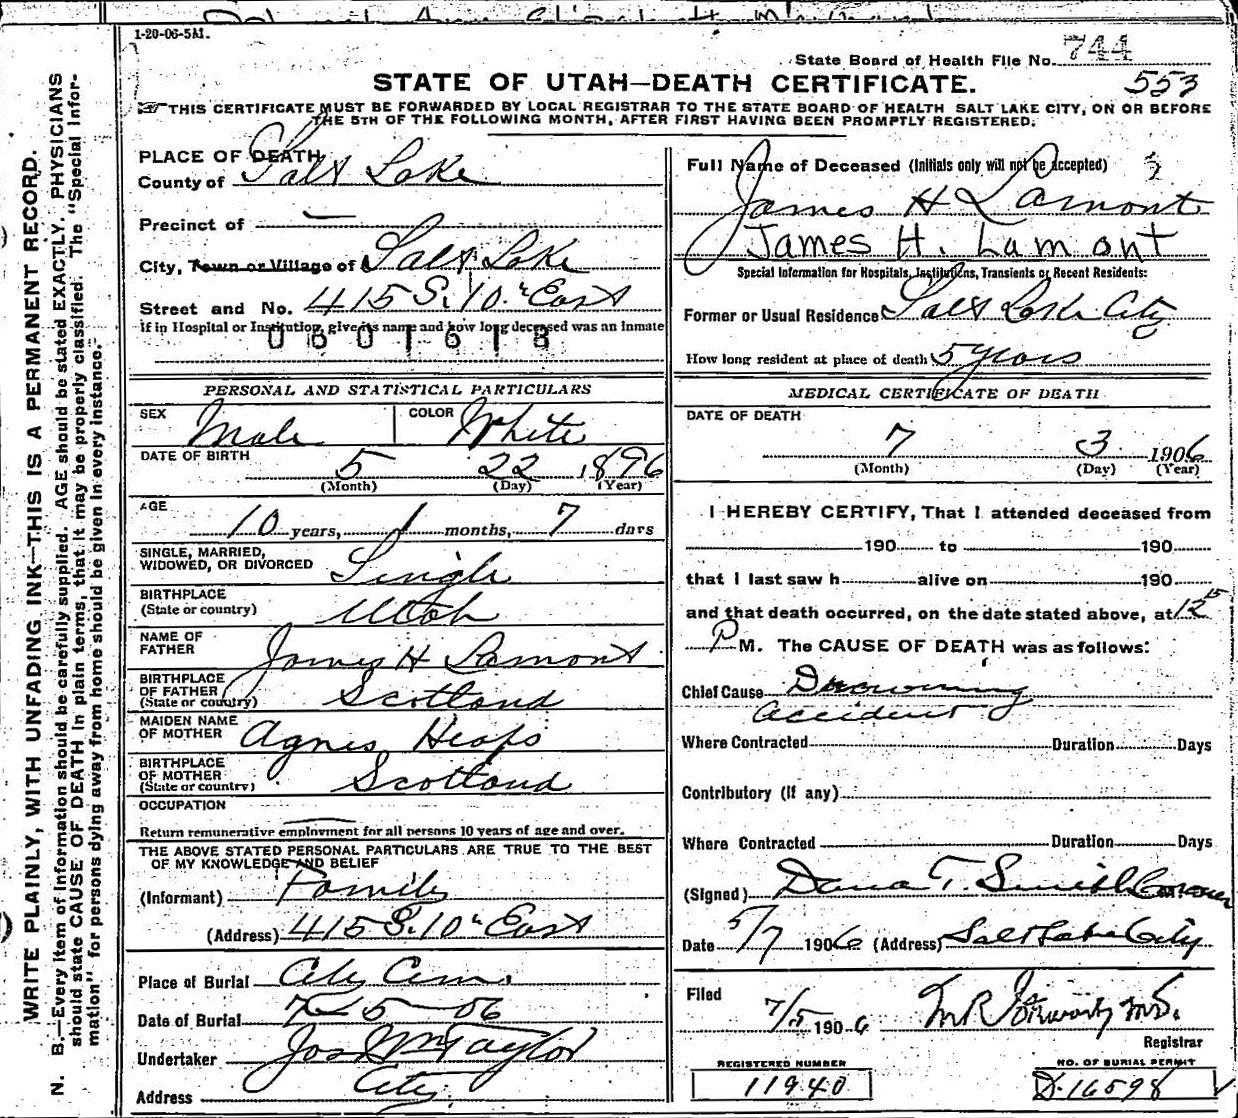 1-20-06-5M.
State Board of Health File No. 744
553
STATE OF UTAH—DEATH CERTIFICATE.
THIS CERTIFICATE MUST BE FORWARDED BY LOCAL REGISTRAR TO THE STATE BOARD OF HEALTH SALT LAKE CITY, ON OR BEFORE
THE 5TH OF THE FOLLOWING MONTH, AFTER FIRST HAVING BEEN PROMPTLY REGISTERED.
WRITE PLAINLY, WITH UNFADING INK—THIS IS A PERMANENT RECORD.
N. B.—Every item of information should be carefully supplied. AGE should be stated EXACTLY. PHYSICIANS
should state CAUSE OF DEATH in plain terms, that it may be properly classified. The "Special Infor-
mation" for persons dying away from home should be given in every instance.
PLACE OF DEATH
County of Salt Lake
Precinct of —
City, Town or Village of Salt Lake
Street and No. 415 S. 10" East
if in Hospital or Institution, give its name and how long deceased was an inmate
0601618
PERSONAL AND STATISTICAL PARTICULARS
SEX Male COLOR White
DATE OF BIRTH 5 22 1896
(Month) (Day) (Year)
AGE 10 years, 1 months, 7 days
SINGLE, MARRIED,
WIDOWED, OR DIVORCED Single
BIRTHPLACE
(State or country) Utah
NAME OF
FATHER James H Lamont
BIRTHPLACE
OF FATHER
(State or country) Scotland
MAIDEN NAME
OF MOTHER Agnes Heaps
BIRTHPLACE
OF MOTHER
(State or country) Scotland
OCCUPATION
Return remunerative employment for all persons 10 years of age and over.
THE ABOVE STATED PERSONAL PARTICULARS ARE TRUE TO THE BEST
OF MY KNOWLEDGE AND BELIEF
(Informant) Family
(Address) 415 S. 10" East
Place of Burial City Cem.
Date of Burial 7-5-06
Undertaker Jos Wm Taylor
Address City
Full Name of Deceased (Initials only will not be accepted)
James H Lamont
James H. Lamont
Special Information for Hospitals, Institutions, Transients or Recent Residents:
Former or Usual Residence Salt Lake City
How long resident at place of death 5 years
MEDICAL CERTIFICATE OF DEATH
DATE OF DEATH
7 3 1906
(Month) (Day) (Year)
I HEREBY CERTIFY, That I attended deceased from
190 to 190
that I last saw h alive on 190
and that death occurred, on the date stated above, at 12 15
P M. The CAUSE OF DEATH was as follows:
Chief Cause Drowning
Accident
Where Contracted Duration Days
Contributory (if any)
Where Contracted Duration Days
(Signed) Dana T. Smith Coroner
Date 5/7 1906 (Address) Salt Lake City
Filed 7/5 1906 M.D.
Registrar
REGISTERED NUMBER
11940
NO. OF BURIAL PERMIT
D.16598